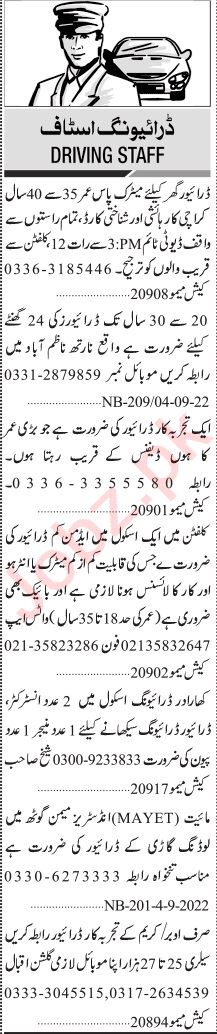 ڈرائیونگ اسٹاف
DRIVING STAFF
ڈرائیور گھر کیلئے میٹرک پاس عمر 35 سے 40 سال
کراچی کا رہائشی اور شناختی کارڈ، تمام راستوں سے
واقف ڈیوٹی ٹائم 3:PM سے رات 12، کلفٹن سے
قریب والوں کو ترجیح۔ 0336-3185446
کیش میمو 20908
20 سے 30 سال تک ڈرائیورز کی 24 گھنٹے
کیلئے ضرورت ہے واقع نارتھ ناظم آباد میں
رابطہ کریں موبائل نمبر 0331-2879859
NB-209/04-09-22
ایک تجربہ کار ڈرائیور کی ضرورت ہے جو بڑی عمر
کا ہوں ڈیفنس کے قریب رہتا ہوں۔
رابطہ 0336-3355580۔
کیش میمو 20901
کلفٹن میں ایک اسکول میں ایڈمن کم ڈرائیور کی
ضرورت ہے جس کی قابلیت کم از کم میٹرک یا انٹر ہو
اور کار کا لائسنس ہونا لازمی ہے اور بائیک بھی
ضروری ہے (عمر کی حد 18 تا 35 سال) واٹس ایپ
02135832647 فون 021-35823286
کیش میمو 20902
کھارادر ڈرائیونگ اسکول میں 2 عدد انسٹرکٹر،
ڈرائیور ڈرائیونگ سیکھانے کیلئے 1 عدد منیجر 1 عدد
پیون کی ضرورت 0300-9233833 شیخ صاحب
کیش میمو 20917
مائیت (MAYET) انڈسٹریز میمن گوٹھ میں
لوڈنگ گاڑی کے ڈرائیور کی ضرورت ہے
مناسب تنخواہ رابطہ 0330-6273333
NB-201-4-9-2022
صرف اوبر/کریم کے تجربہ کار ڈرائیور رابطہ کریں
سیلری 25 تا 27 ہزار اپنا موبائل لازمی گلشن اقبال
0333-3045515,0317-2634539
کیش میمو 20894
Jobz.pk